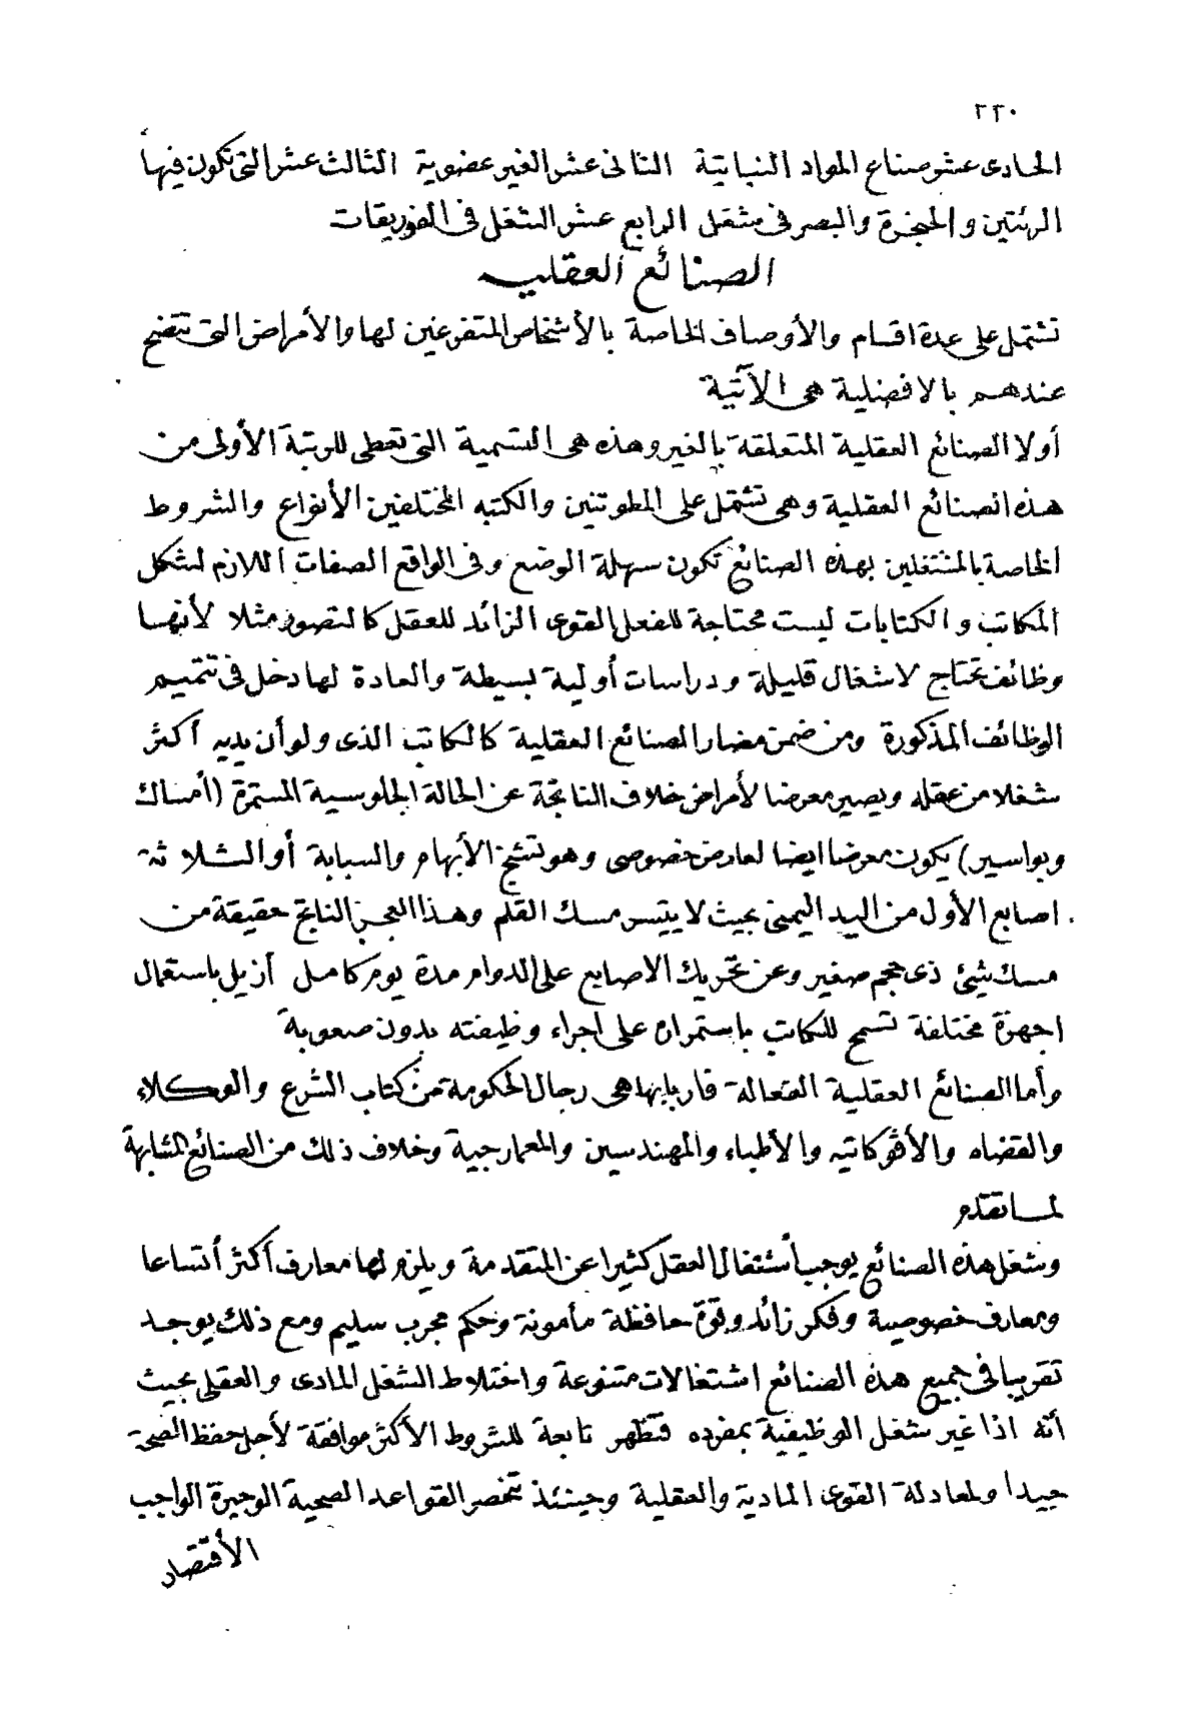 ٢٢٠
الحادى عشر صناع المواد النباتية الثانى عشر الغير عضوية الثالث عشر التى تكون فيها
الرئتين والحنجرة والبصر فى مشغل الرابع عشر الشغل فى الفوريقات
الصنائع العقليه
تشتمل على عدة اقسام والأوصاف الخاصة بالأشخاص المتفرغين لها والأمراض التى تتضح
عندهم بالافضلية هى الآتية
أولا الصنائع العقلية المتعلقة بالغير وهذه هى التسمية التى تعطى للرتبة الأولى من
هذه الصنائع العقلية وهى تشتمل على والكتبه المختلفين الأنواع والشروط
الخاصة بالمشتغلين بهذه الصنائع تكون سهلة الوضع وفى الواقع الصفات اللازم لشكل
المكاتب والكتابات ليست محتاجة للفعل القوى الزائد للعقل كالتصور مثلا لأنها
وظائف تحتاج لاشغال قليلة ودراسات أولية بسيطة والعادة لها دخل فى تتميم
الوظائف المذكورة ومن ضمن مضار الصنائع العقلية كالكاتب الذى ولو أن يديه أكثر
شغلا من عقله ويصير معرضا لأمراض خلاف الناتجة عن الحالة الجلوسية المستمرة (أمساك
وبواسير) يكون معرضا ايضا لعارض خصوصى وهو تشنج الأبهام والسبابة أو الثلاثة
اصابع الأول من اليد اليمنى بحيث لا يتيسر مسك القلم وهذا العجز الناتج حقيقة من
مسك شئ ذى حجم صغير وعن تحريك الاصابع على الدوام مدة يوم كامل أزيل باستعمال
اجهزة مختلفة تسمح للكاتب باستمراره على اجراء وظيفته بدون صعوبة
وأما الصنائع العقلية الفعالة فاربابها هى رجال الحكومة من كتاب الشرع والوكلاء
والقضاه والأڤوكاتيه والأطباء والمهندسين والمعمارجية وخلاف ذلك من الصنائع المشابهة
لما تقدم
وشغل هذه الصنائع يوجب أشتغال العقل كثيرا عن المتقدمة ويلزم لها معارف أكثر أتساعا
ومعارف خصوصية وفكر زائد وقوة حافظة مأمونة وحكم مجرب سليم ومع ذلك يوجد
تقريبا فى جميع هذه الصنائع اشتغالات متنوعة واختلاط الشغل المادى والعقلى بحيث
أنه اذا غير شغل الوظيفية بمفرده فتظهر تابعة للشروط الأكثر موافقة لأجل حفظ الصحة
جيدا ولمعادلة القوى المادية والعقلية وحينئذ تنحصر القواعد الصحية الوجيزة الواجب
الأقتصاد